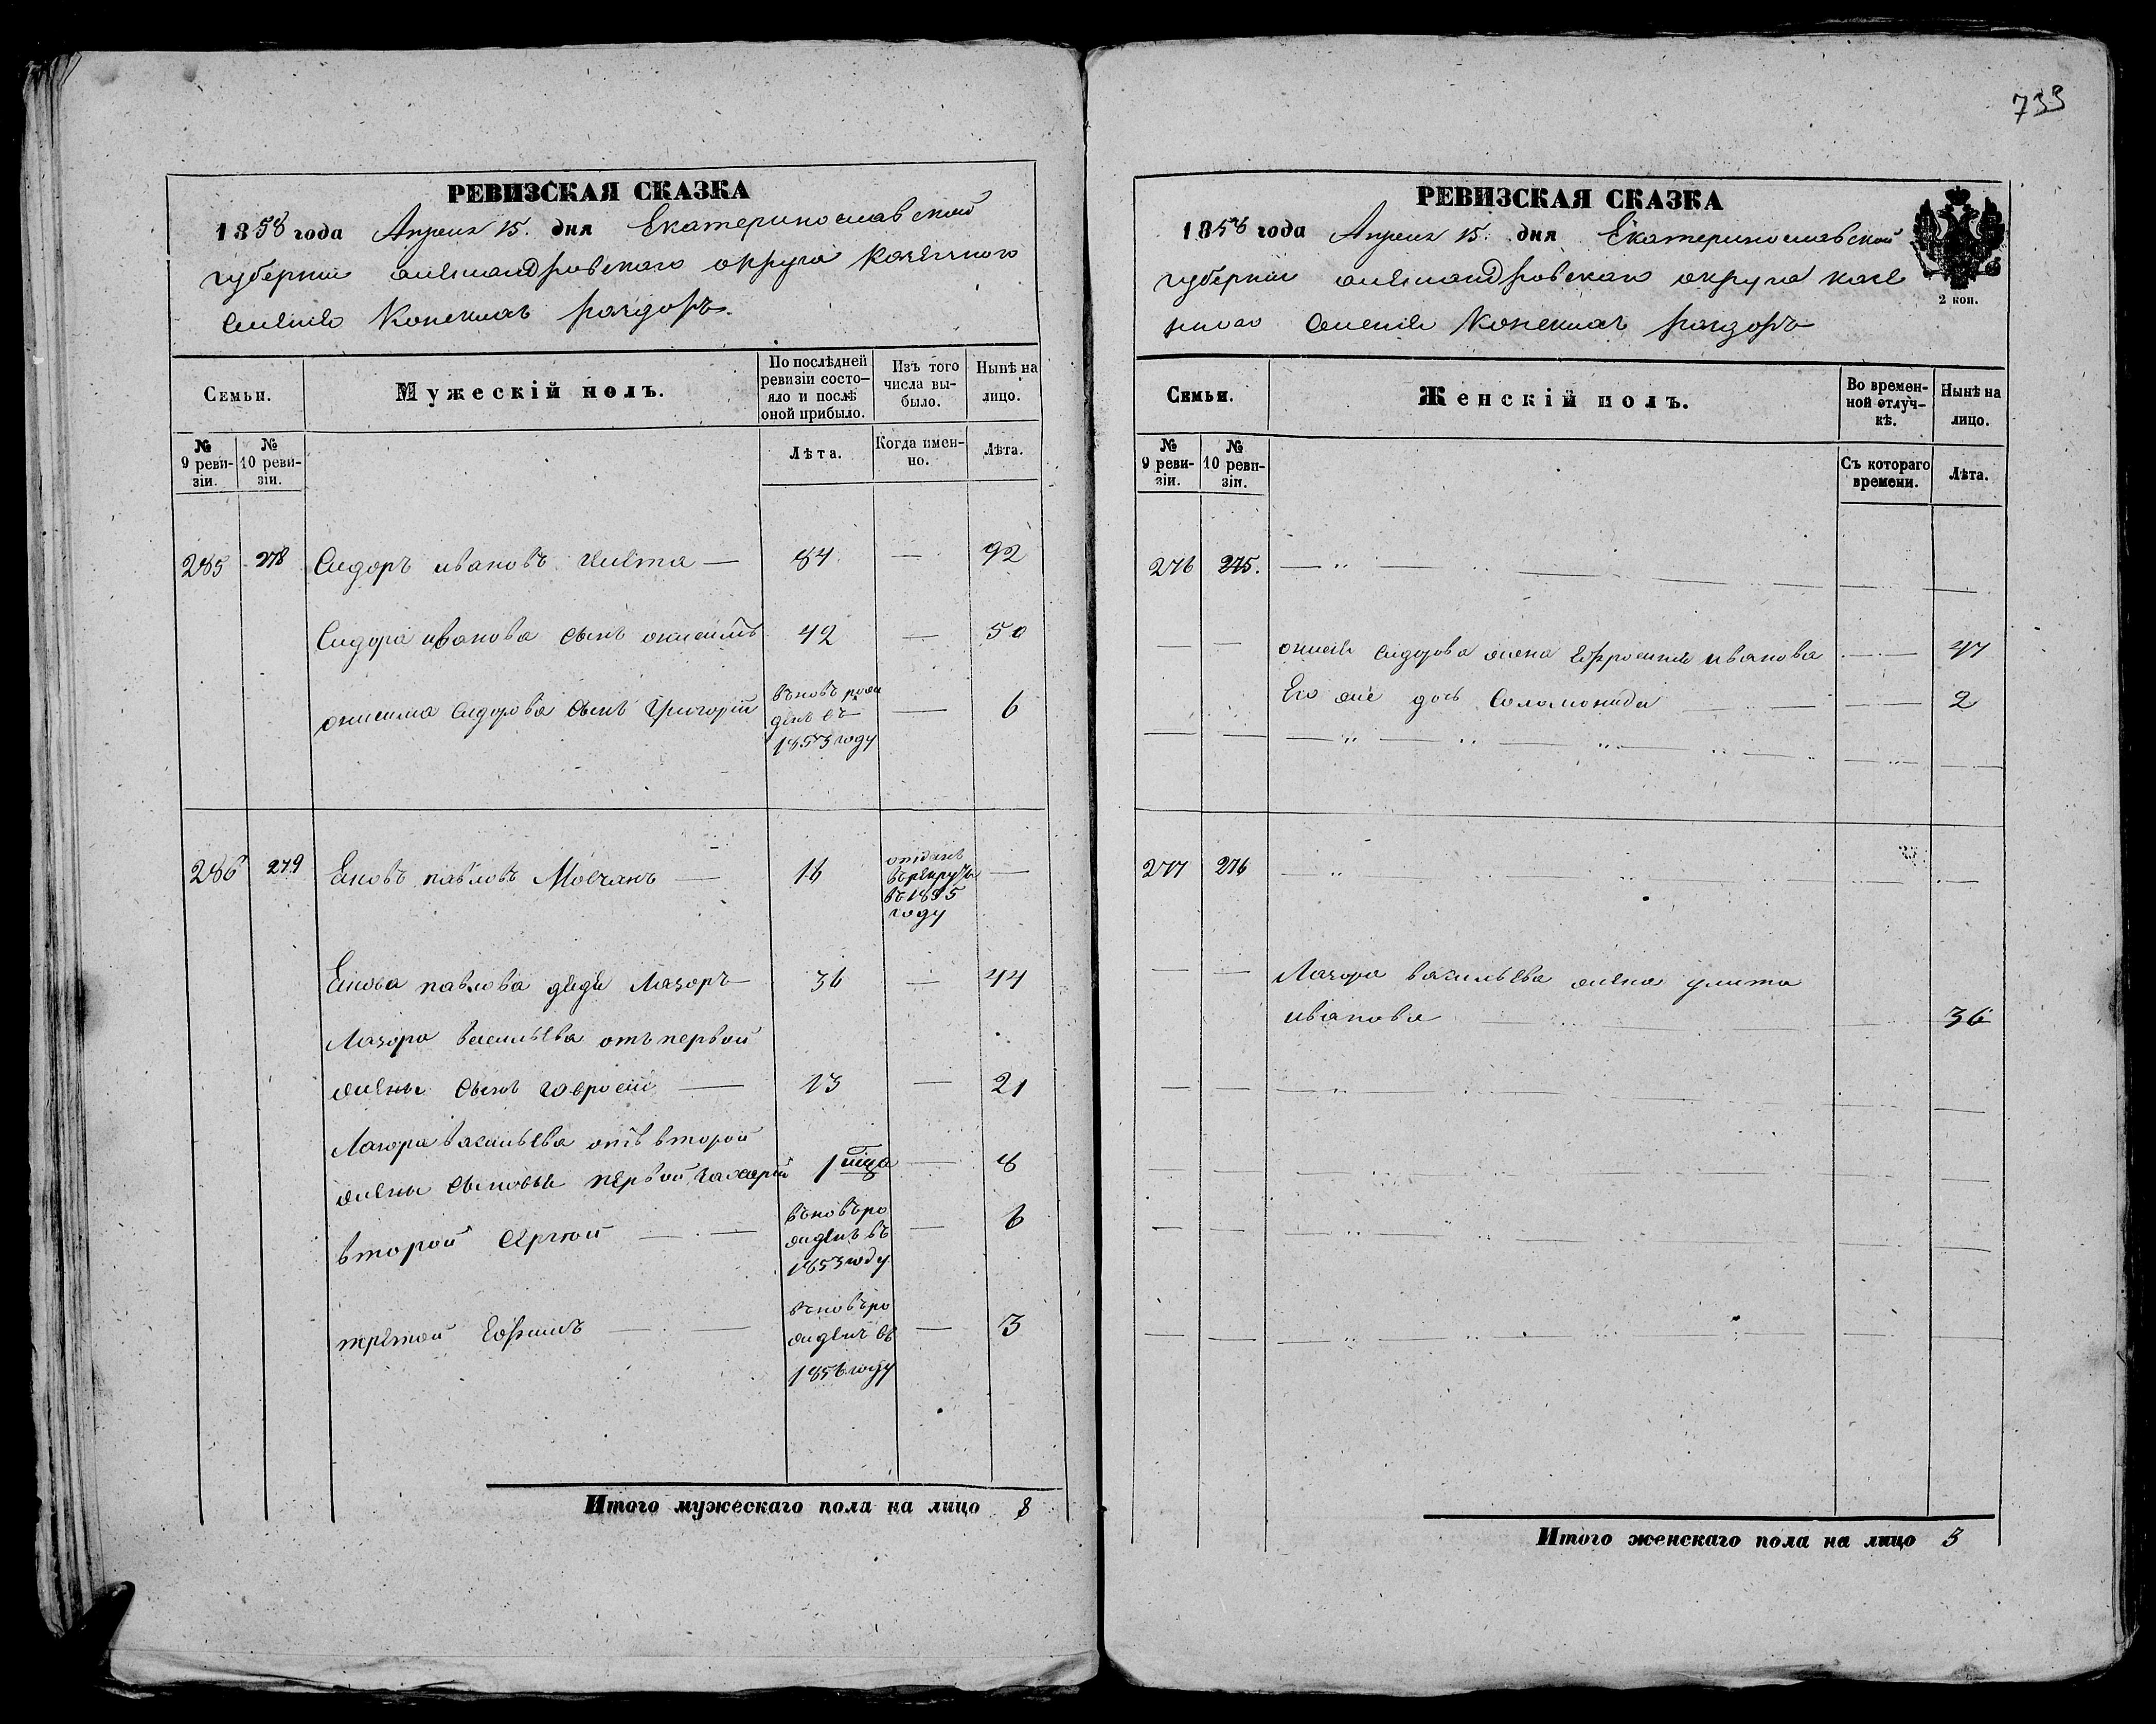 РЕВИЗСКАЯ СКАЗКА
1858 года Апреля 15. дня Екатеринославской
губернии александровскаго округа казеннаго
селения Конекихъ раздоръ.
Семьи.
Мужескій полъ.
По послѣдней
ревизіи состо-
яло и послѣ
оной прибыло.
Изъ того
числа вы-
было.
Нынѣ на
лицо.
№
9 реви-
зіи.
№
10 реви-
зіи.
Лѣта.
Когда имен-
но.
Лѣта.
285 278 Сидоръ ивановъ — 84 — 92
Сидора иванова сынъ онисимъ 42 — 50
онисима сидорова сынъ Григорій
въновь рож
денъ въ
1853 году
— 6
286 279 павловъ Мовчанъ — 18
отданъ
врекруты
въ 1855
году
—
павлова дядя Лазоръ — 36 — 44
Лазора васильева отъ первой
жены сынъ — 13 — 21
Лазора васильева отъ второй
жены сыновья первой захарій 1 — 8
второй Сергей — —
вьновъро
жденъ въ
1853 году
— 6
третой Ефимъ — —
вьновъро
жденъ въ
1856 году
— 3
Итого мужескаго пола на лицо 8
733
РЕВИЗСКАЯ СКАЗКА
1858 года Апреля 15. дня Екатеринославской
губернии александровскаго округа казе
ннаго селения Конекихъ раздоръ
2 коп.
Семьи.
Женскій полъ.
Во времен-
ной отлуч-
кѣ.
Нынѣ на
лицо.
№
9 реви-
зіи.
№
10 реви-
зіи.
Съ котораго
времени.
Лѣта.
276 275.
онисима сидорова жена Ефросиния иванова — 47
Его же дочь Соломонида — 2
277 276
Лазора васильева жена улита
иванова — 36
Итого женскаго пола на лицо 3